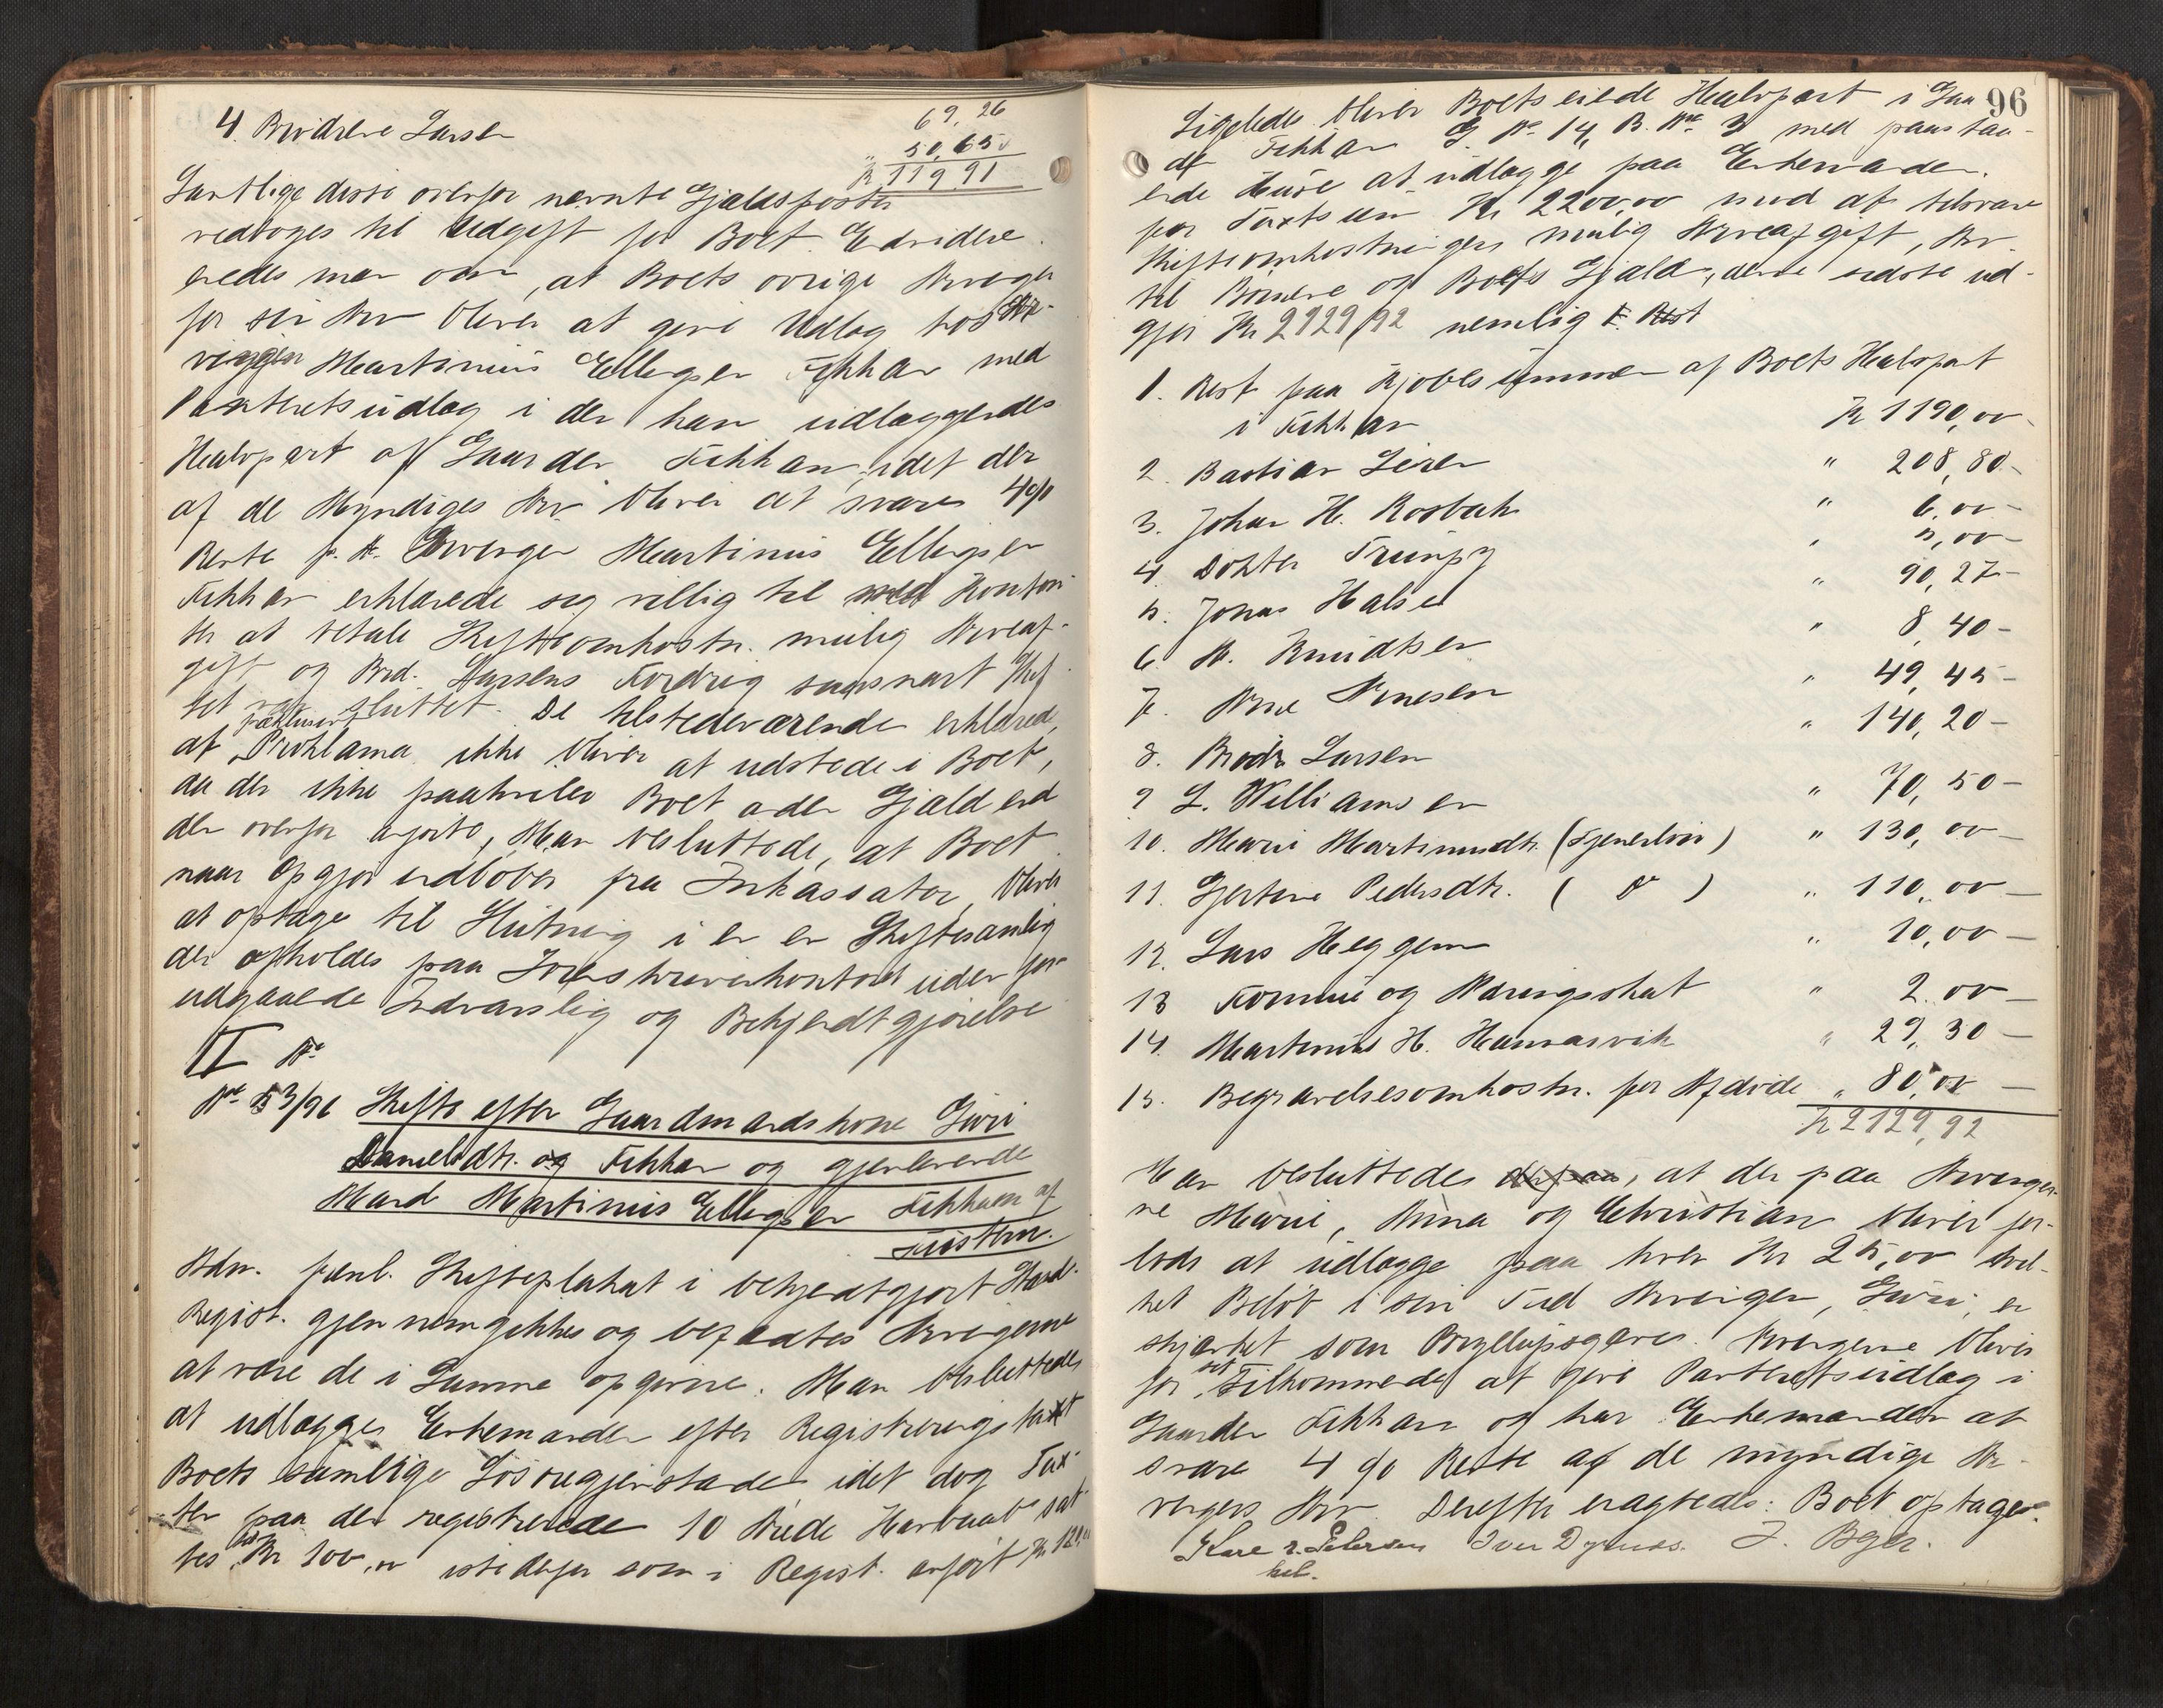 69,26
4. Brødrene Larsen " 50,65
Kr 119,91
Samtlige disse ovenfor nævnte Gjældsposter
vedtoges til Udgift for Boet. Endvidere
enedes man om, at Boets øvrige Arvinger
for sin Arv bliver at give Udlæg hos Ar-
vingen Martinus Ellingsen Fikkan med
Panteretsudlæg i den ham udlæggendes
Halvpart af Gaarden Fikkan, idet der
af de Myndiges Arv bliver at svare 4 %
Rente p. A. Arvingen Martinus Ellingsen
Fikkan erklærede sig villig til med Kontan-
ter at betale Skifteomkostn. mulig Arveaf-
gift og Brd. Larsens Fordring saasnart Skif-
tet var sluttet. De tilstedeværende erklærede,
præklusivt
at Proklama ikke bliver at udstede i Boet,
da der ikke paahviler Boet anden Gjæld end
den ovenfor anførte, Man besluttede, at Boet
naar Opgjør indløber fra Inkassator, bliver
at optage til Slutning i en en Skiftesamling
der afholdes paa Sorenskriverkontoret uden for-
udgaaende Indvarsling og Bekjendtgjørelse
II No
No 53/96 Skifte efter Gaardmandskone Guri
Danielsdtr. og Fikkan og gjenlevende
Mand Martinus Ellingsen Fikkan af
Tustern.
Adm. freml. Skifteplakat i bekjendtgjort Stand.
Regist. gjennemgikkes og befandtes Arvingerne
at være de i Samme opgivne. Man besluttedes
at udlægges Enkemanden efter Registreringstaxt
Boets samtlige Løsøregjenstande idet dog Tax-
ten paa den registrerede 10 Alede Havbaat sat-
tes til Kr 100,00 istedenfor som i Regist. anført Kr 120,00
96
Ligeledes bliver Boets eiende Halvpart i Gaar-
den Fikkan G. No 14, B. No 3 med paastaa-
ende Huse at udlægge paa Enkemanden.
for Taxtsum Kr 2200,00 mod at tilsvare
Skifteomkostninger, mulig Arveafgift, Arv
til Børnene og Boets Gjæld, denne sidste ud-
gjør Kr 2129,92 nemlig Rest
1. Rest paa Kjøbesummen af Boets Halvpart
i Fikkan Kr 1190,00
2. Bastian Leren " 208,80 –
3. Johan H. Rosbach " 6,00 –
4. Dokter Trumpy " 5,00 –
5. Jonas Halsen " 90,27 –
6. A. Knudtsen " 8,40 –
7. Arne Arnesen " 49,45 –
8. Brødr. Larsen " 140,20 –
9 L. Williamsen " 70,50 –
10. Marie Martinusdtr. (Tjenerløn) " 130,00 –
11. Gjertine Pedersdtr. ( Do ) " 110,00 –
12. Lars Heggem " 10,00 –
13 Kommune og Næringsskat " 2,00 –
14. Martinus H. Hamnasvik " 29,30 –
15. Begravelsesomkostn. for Afdøde " 80,00 –
Kr 2129,92
Man besluttedes derpaa, at der paa Arvinger-
ne Marie, Anna og Christian bliver for-
lods at udlægge paa hver Kr 25,00 hvil-
ket Beløb i sin Tid Arvingen, Guri, er
skjænket som Bryllupsgave. Arvingerne bliver
for sit Tilkommende at give Panteretsudlæg i
Gaarden Fikkan og har Enkemanden at
svare 4 % Rente af de myndige Ar-
vingers Arv. Derefter eragtedes: Boet optages.
Iver J. Bger.